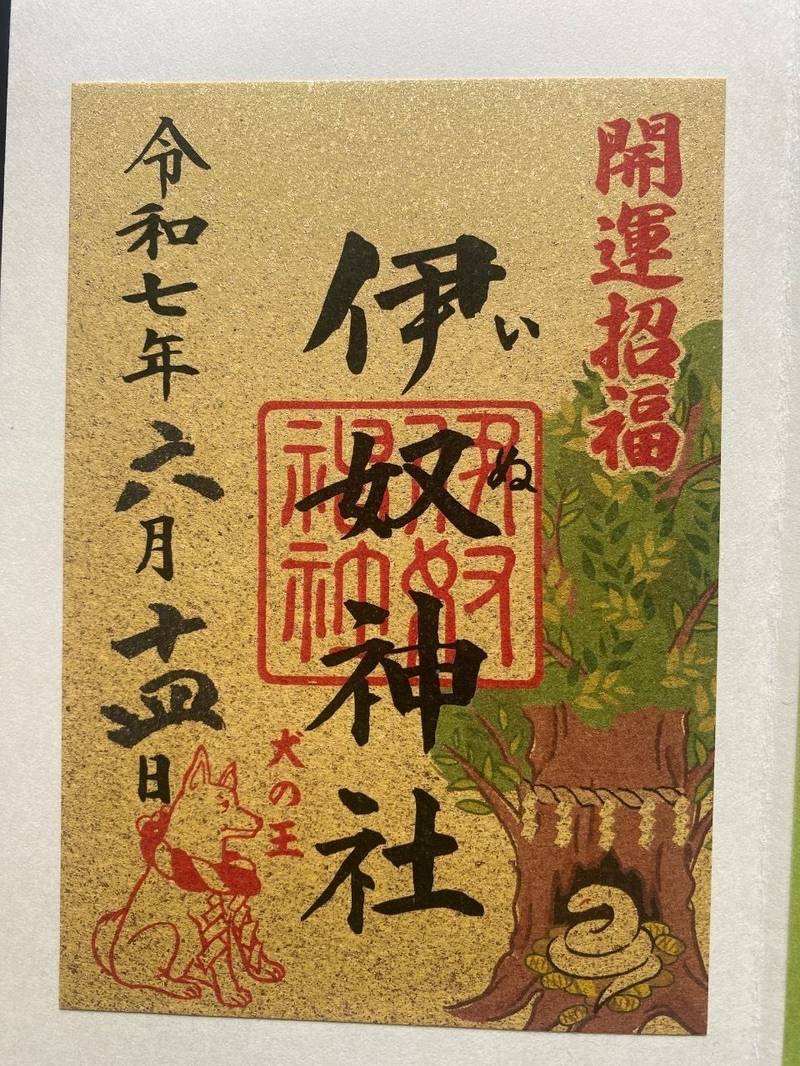 開運招福
伊奴神社
いぬ
伊奴
神社
犬の王
令和七年六月十四日